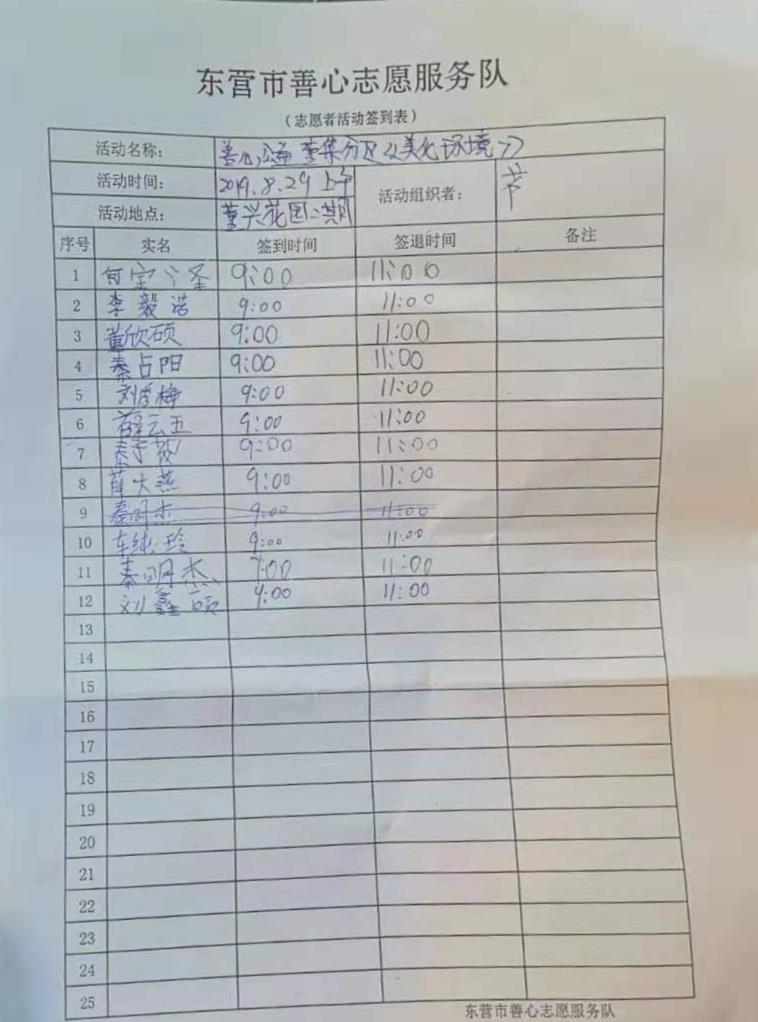 东营市善心志愿服务队
(志愿者活动签到表)
活动名称: 善心公益 董集分区《美化环境》
活动时间: 2019.8.29 上午 活动组织者:
活动地点: 董兴花园二期
序号 实名 签到时间 签退时间 备注
1 9:00 11:00
2 李毅浩 9:00 11:00
3 董欣硕 9:00 11:00
4 秦占阳 9:00 11:00
5 刘秀梅 9:00 11:00
6 薛云五 9:00 11:00
7 秦子 9:00 11:00
8 薛火燕 9:00 11:00
9 秦明杰 9:00 11:00
10 车纯玲 9:00 11:00
11 秦明杰 9:00 11:00
12 刘鑫硕 9:00 11:00
13
14
15
16
17
18
19
20
21
22
23
24
25
东营市善心志愿服务队